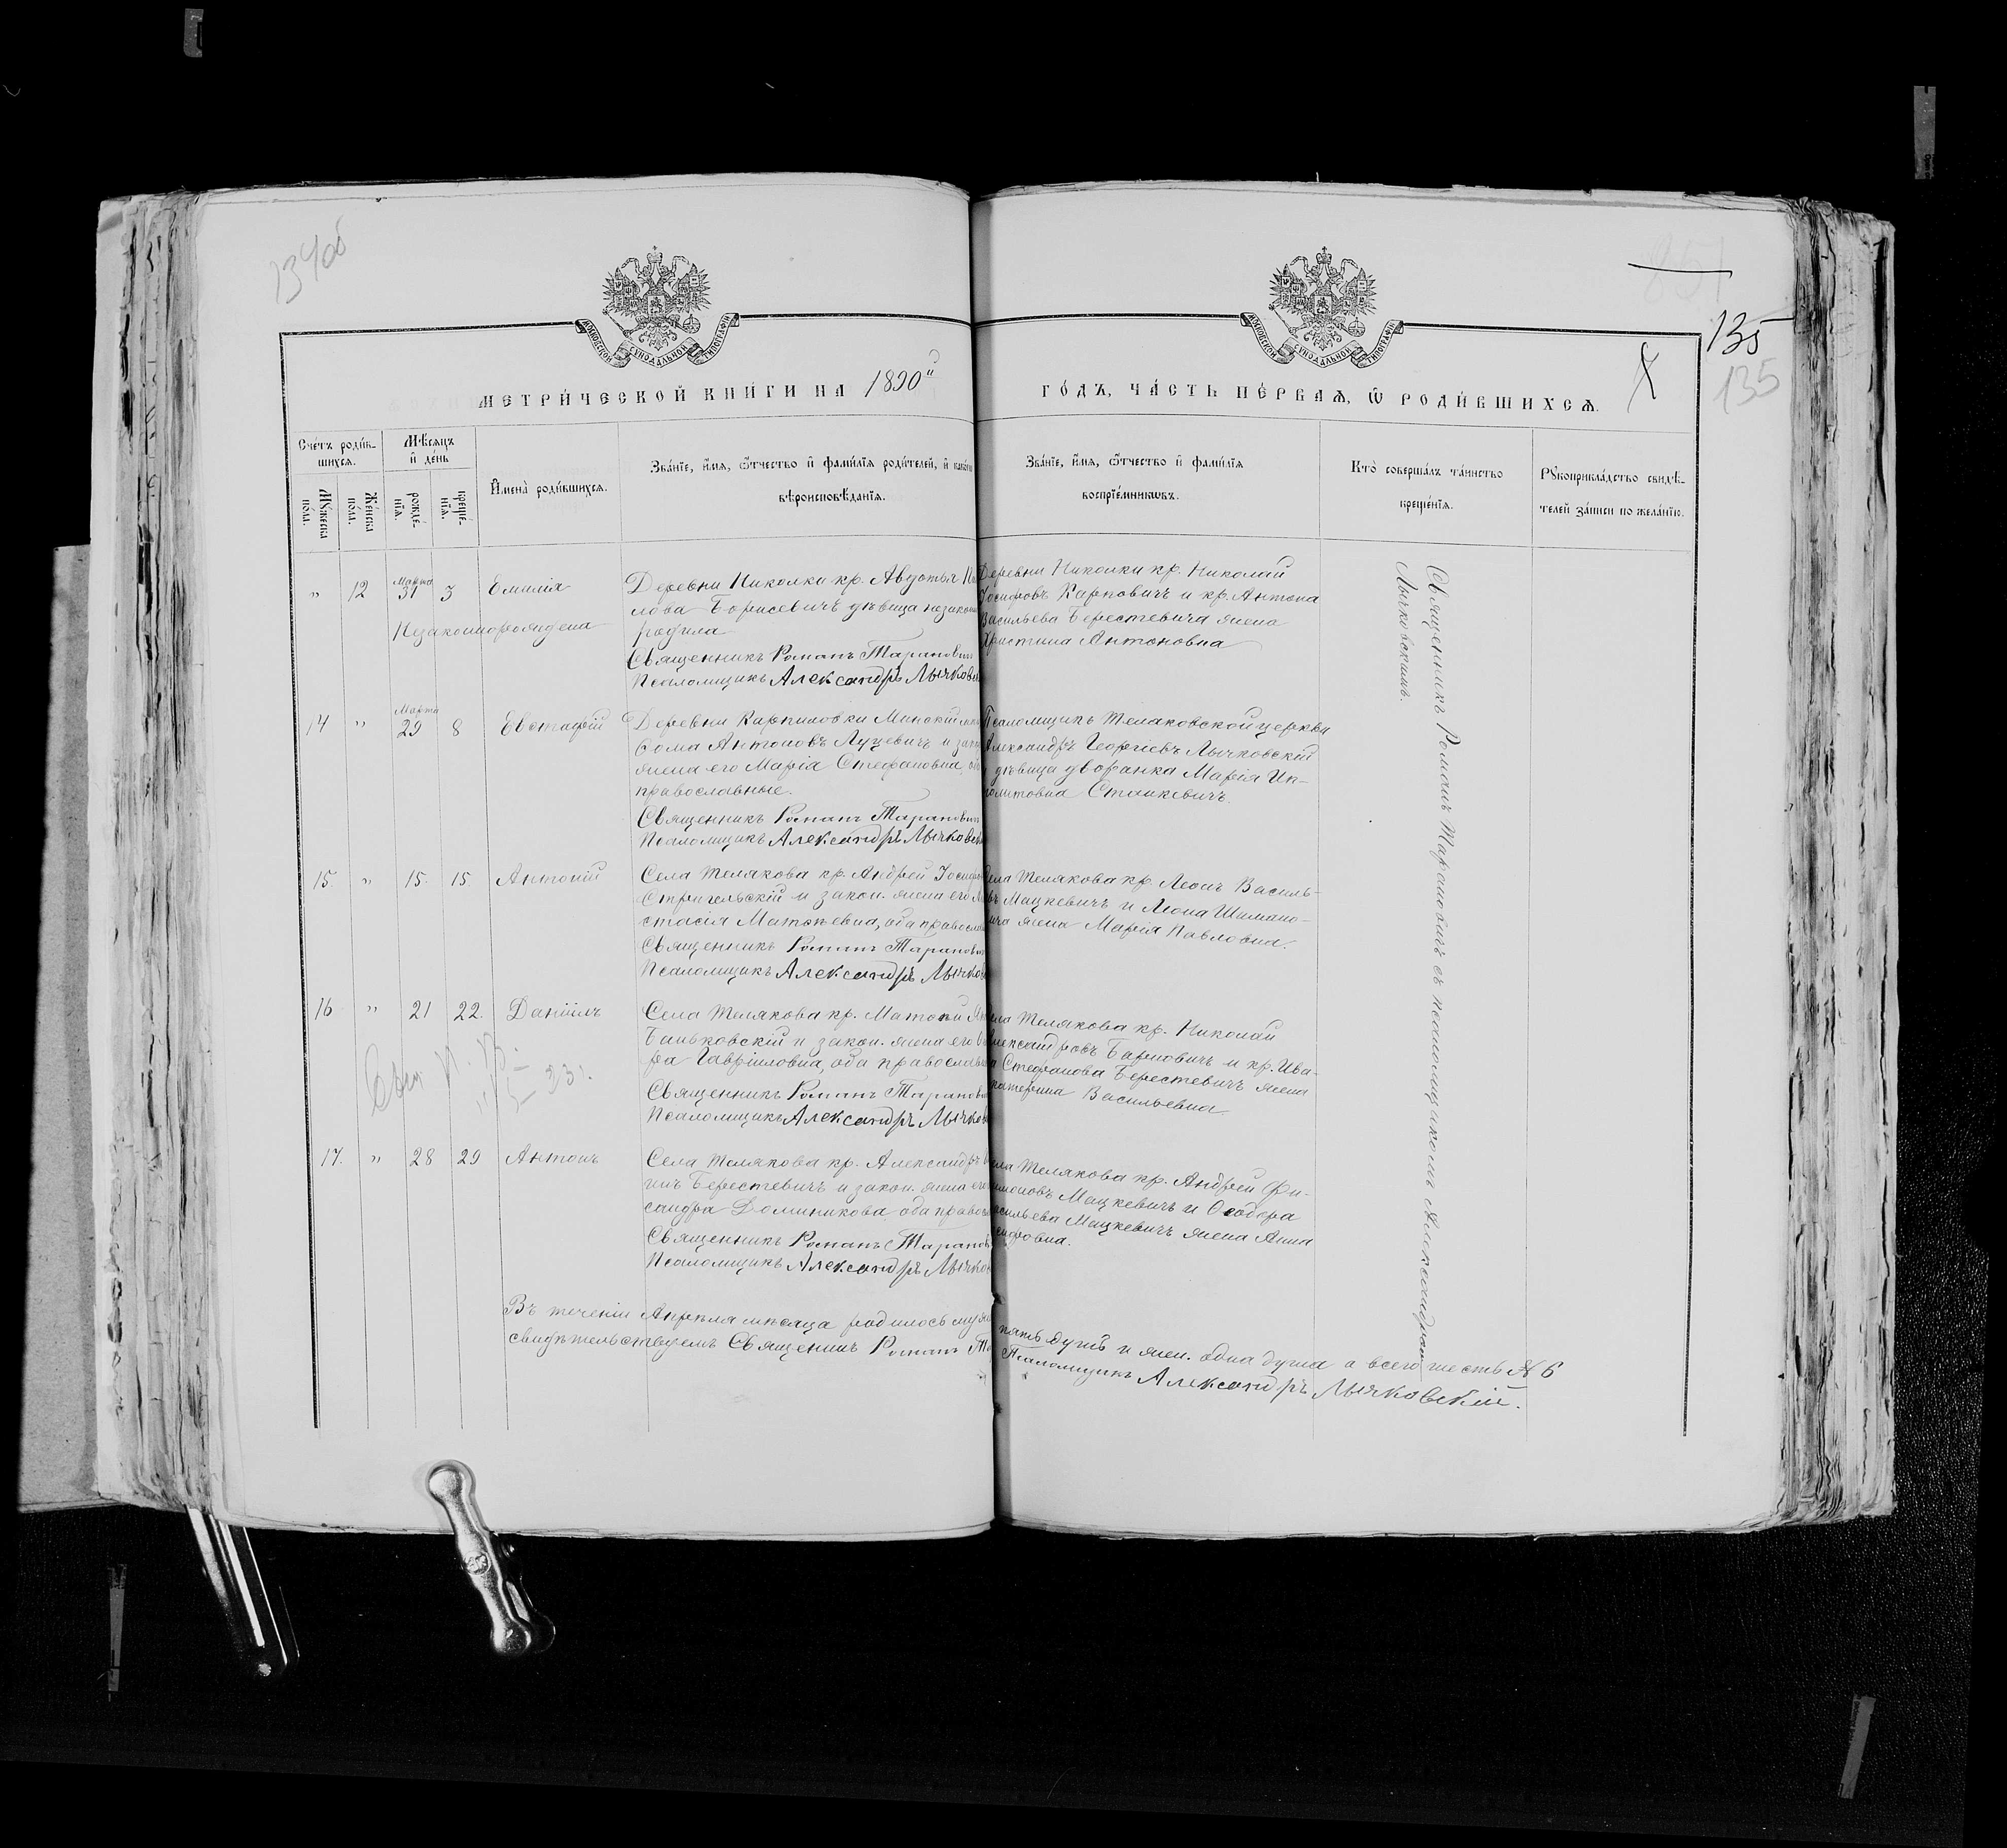 134об
135
135
МОСКОВСКОЙ СѴНОДАЛЬНОЙ ТИПОГРАФІИ
МОСКОВСКОЙ СѴНОДАЛЬНОЙ ТИПОГРАФІИ
МЕТРИ́ЧЕСКОЙ КНИ́ГИ НА 1890й
ГО́ДЪ, ЧА́СТЬ ПЕ́РВАѦ, Ѿ РОДИ́ВШИХСѦ.
Сче́тъ роди́в-
шихсѧ.
Мѣ́сѧцъ
и҆ де́нь
Мꙋ́жеска
по́ла.
Же́нска
по́ла.
рожде́-
нїѧ.
креще́-
нїѧ.
И҆мена̀ роди́вшихсѧ.
Зва́нїе, и҆́мѧ, ѻ҆́тчество и҆ фами́лїѧ роди́телей, и҆ како́гѡ
вѣроисповѣ́данїѧ.
Зва́нїе, и҆́мѧ, ѻ҆́тчество и҆ фами́лїѧ
воспрїе́мникѡвъ.
Кто̀ соверша́лъ та́инство
креще́нїѧ.
Рꙋкоприкла́дство свидѣ́-
телей за́писи по жела́нїю.
" 12 Марта 31 3 Емилія
Незаконнорождена
Деревни Николки кр. Авдотья
лова Борисевичъ дѣвица незаконно
родила
Священникъ Романъ Тарановичъ
Псаломщикъ Александръ Лычковск
Деревни Николки кр. Николай
Іосифовъ Карповичъ и кр. Антона
Васильева Берестевича жена
Христина Антоновна
Священникъ Романъ Тарановичъ съ псаломщикомъ Александромъ
Лычковскимъ.
14 " Марта 29 8 Евстафій
Деревни Карпиловки Минскій мѣщ
Ѳома Антоновъ Луцевичъ и закон
жена его Марія Стефановна, оба
православные.
Священникъ Романъ Тарановичъ
Псаломщикъ Александръ Лычковск
Псаломщикъ Теляковской церкви
Александръ Георгіевъ Лычковскій
и дѣвица дворянка Марія Ип-
политовна Станкевичъ.
15. " 15. 15. Антоній
Села Телякова кр. Андрей Іосифовъ
Стригельскій и закон. жена его Ана
стасія Матѳѣевна, оба православн
Священникъ Романъ Тарановичъ
Псаломщикъ Александръ Лычков
Села Телякова кр. Леонъ Василь-
евъ Мацкевичъ и Леона Шимано-
вича жена Марія Павловна.
16 " 21 22. Даніилъ
Села Телякова кр. Матѳѣй
Баньковскій и закон. жена его
ра Гавріиловна, оба православн
Священникъ Романъ Тарановичъ
Псаломщикъ Александръ Лычков
Села Телякова кр. Николай
Александровъ Барановичъ и кр. Ива-
на Стефанова Берестевичъ жена
Екатерина Васильевна
17. " 28 29 Антонъ
Села Телякова кр. Александръ
инъ Берестевичъ и закон. жена его
сандра Доминикова оба правос
Священникъ Романъ Таранов
Псаломщикъ Александръ Лычков
Села Телякова кр. Андрей Фи-
лимоновъ Мацкевичъ и Ѳеодора
Васильева Мацкевичъ жена Анна
сифовна.
Въ теченіи Апрѣля мѣсяца родилось муж пять душъ и жен. одна душа а всего шесть № 6
свидѣтельствуемъ Священникъ Романъ Та Псаломщикъ Александръ Лычковскій.